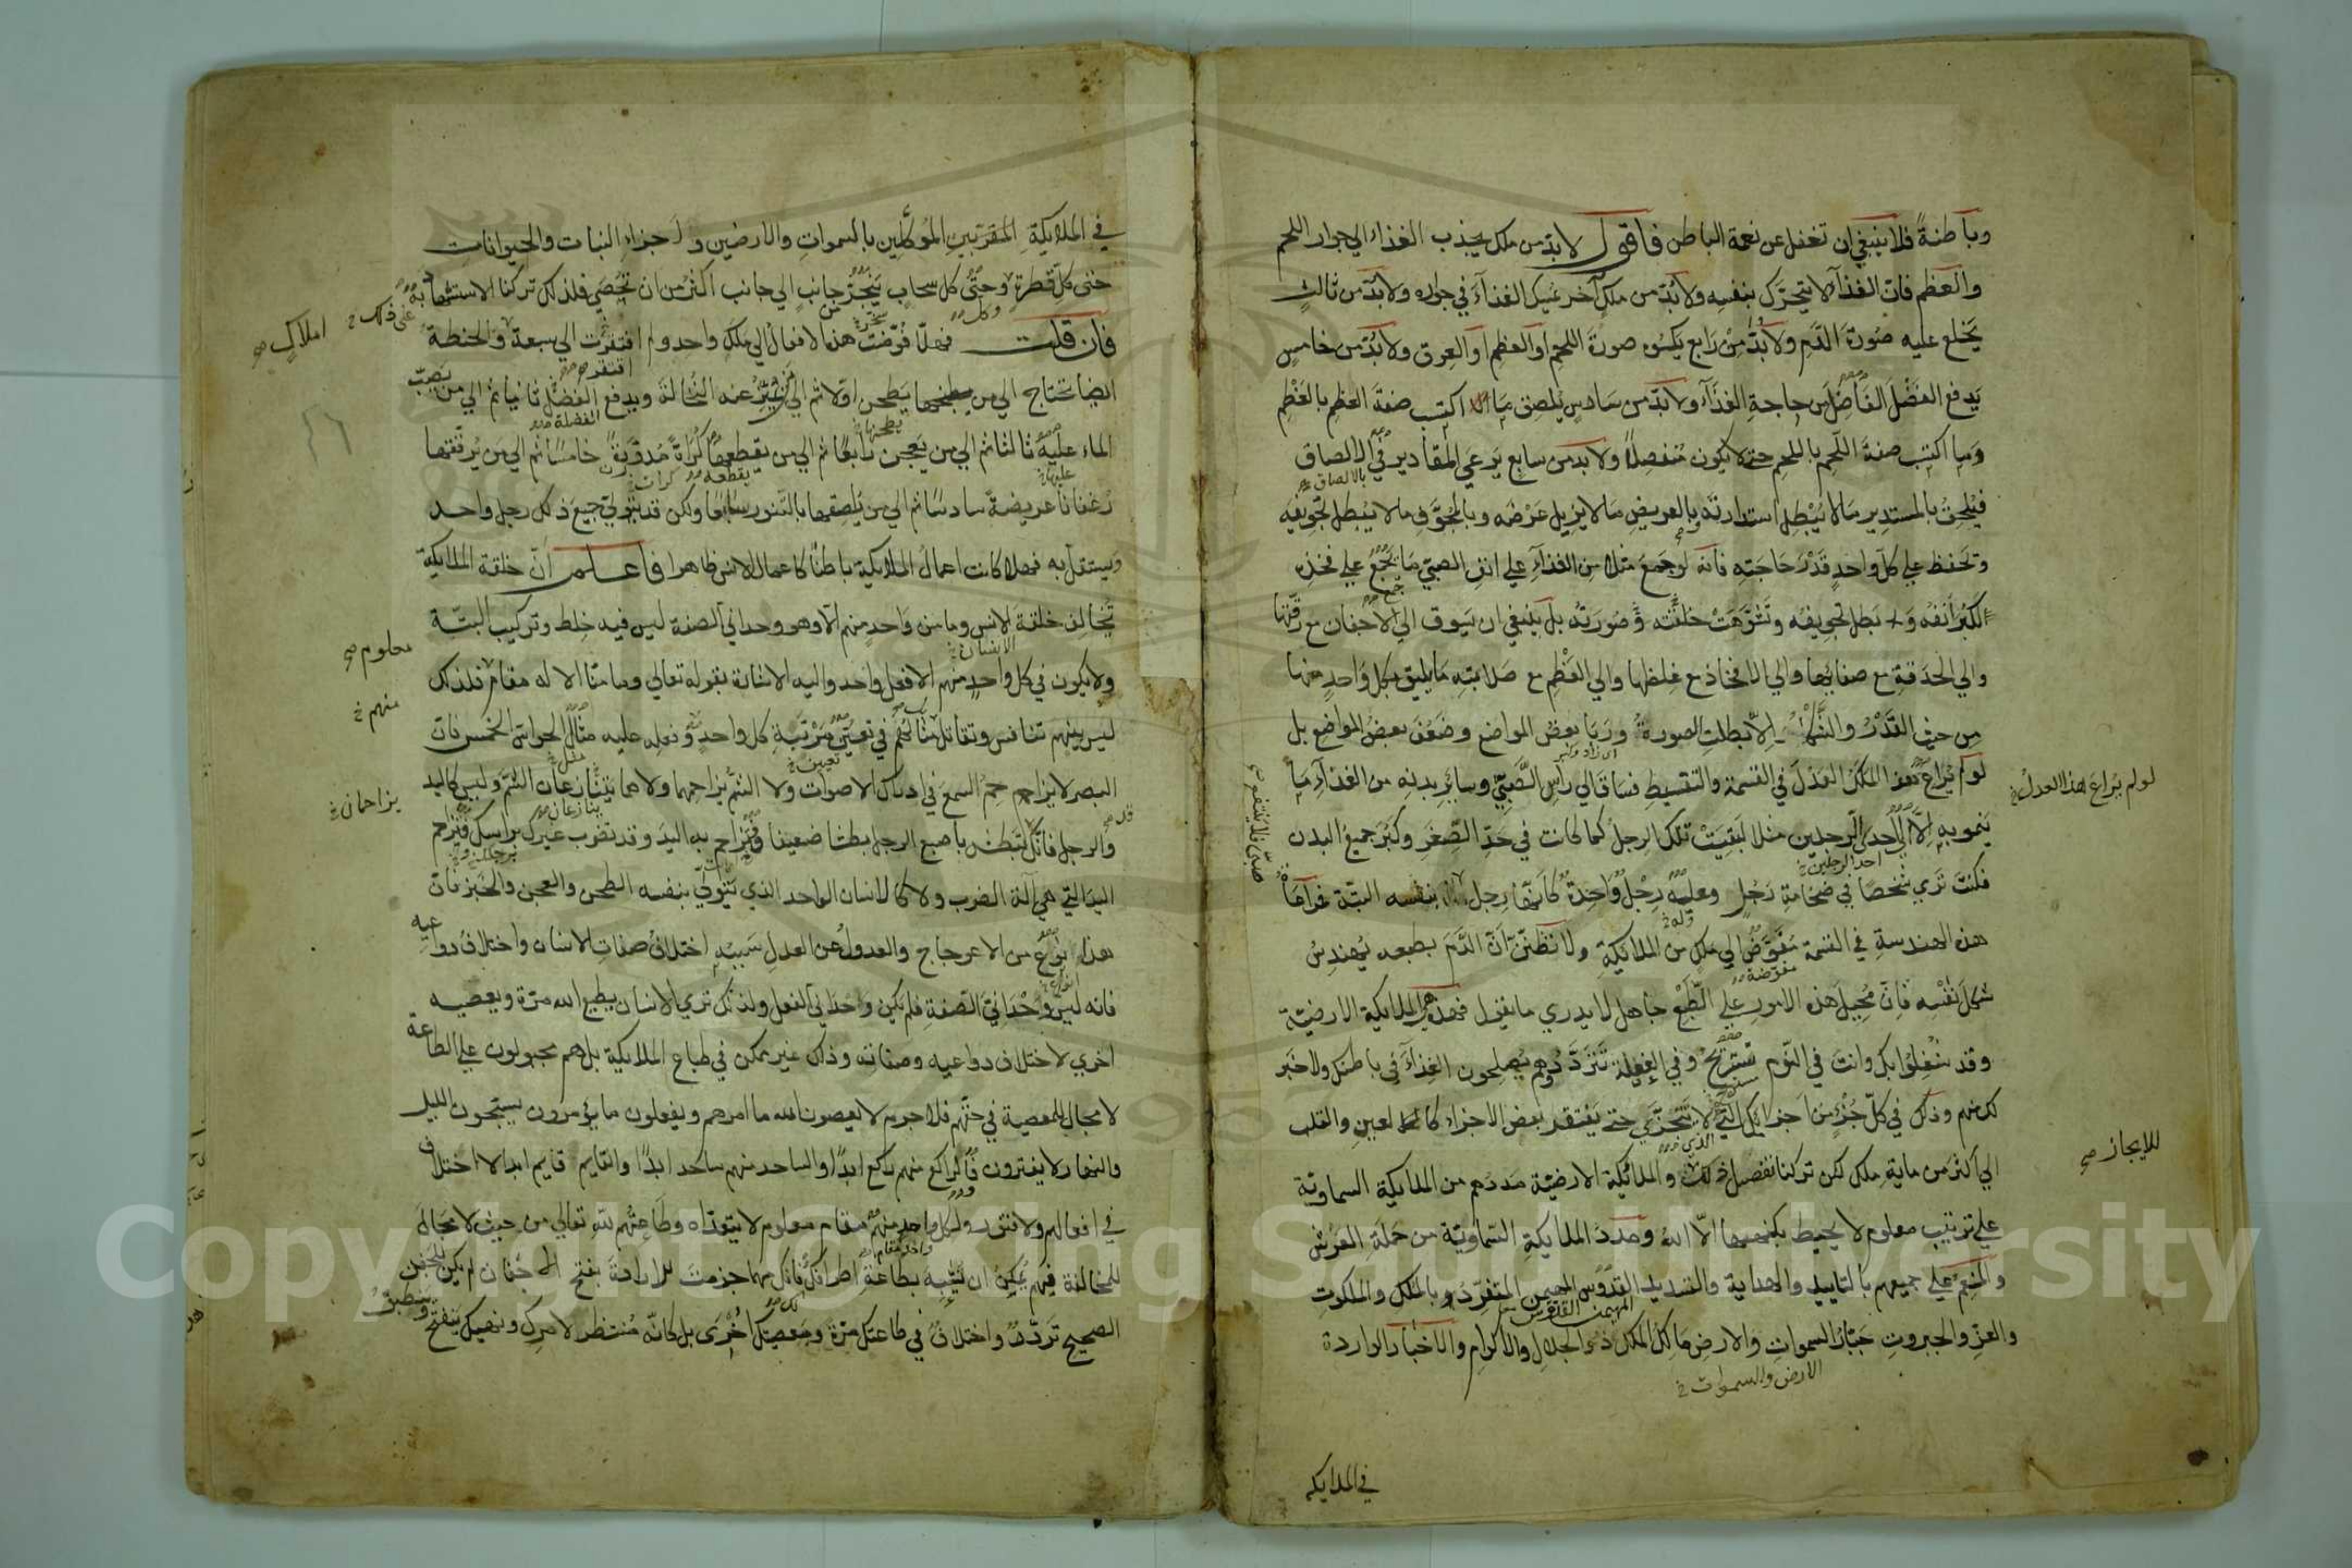 وباطنةً فلا ينبغي ان تغفل عن نعمة الباطن فاقول لا بد من ملك يجذب الغذاء الي جوار اللحم
والعظم فان الغذآ لا يتحرّك بنفسِه ولا بُدّ من ملكٍ آخر يمسك الغذآءَ في جواره ولا بدّ من ثالثٍ
يخلع عليه صُورَةَ الدَّمِ ولا بُدَّ مِنْ رَابع يكسُوه صورةَ اللحمِ او العظمِ او العِرق ولا بُدّ من خامسٍ
يَدفع الفَضْلَ الفَاضِلَ من حاجةِ الغذآءِ ولا بدّ من سَادسٍ يلصق مَا اكتسب صفةَ العظمِ بالعَظْمِ
وَما اكتسب صفةَ اللّحمِ باللحمِ حتي لا يكون مُنفصِلاً ولا بد من سابعٍ يَرعي المقَادير في الالصاق
بالالصاق
فيُلحِقُ بالمستدِيرِ مَا لا يُبْطِل استدارته وبالعريضِ مَا لا يزيل عَرْضَه وبالمجوَّفِ ما لا يُبطِل تجويفَه
وتحفظ علي كلّ واحدٍ قَدْرَ حَاجَتِه فانه لو جَمَعَ مثلا من الغذآءِ علي انفِ الصبيّ مَا يُجْمَعُ علي فخذِه
لكبُرَ اَنفُه وَبَطل تجويفُه وتَشوَّهَتْ خلقَتُه وَصُورَتُه بل يَنبغي ان يَسوق الي الاَجفان مع رقّتها
والي الحدَقةِ مع صفائِها والي الافخاذ مع غِلظها والي العَظْمِ مع صَلابتِه مَا يليق بكلّ وَاحدٍ منها
مِن حيث القَدْرُ والشَّكلُ والّا بَطلتِ الصورةُ ورَبَا بعضُ المواضع وضَعُفَ بعضُ المواضعِ بل
اي زاد وكبر
لو لم يُرَاعِ هذا المَلَكُ العَدْلَ في القسمةِ والتقسيطِ فساقَ الي رأسِ الصَّبيِّ وسايرِ بدنِه من الغذآءِ مَا
لو لم يُراعَ هذا العدلُ خ
يَنمو به اِلّا الي احدي الرّجلين مثلا لَبَقِيَتْ تلكَ الرِجلُ كما كانت في حَدِّ الصِّغَرِ وكَبَرَ جميعُ البدن
احد الرجلين خ
فكنتَ تري شخصًا في ضخامةِ رَجُلٍ وعليه رِجْلٌ واحِدةٌ كاَنّها رجل بنفسه البتّة فمراعَاةُ
وله خ
هذه الهندسةِ في القسمة مُفَوَّضٌ الي ملكٍ من الملايكةِ ولا تَظنّنّ اَنّ الدَّمَ بطبعه يُهندِسُ
مفوّضة
شكلَ نفْسِه فَاِنّ مُحِيلَ هذه الامورِ علي الطَّبْعِ جَاهل لا يدري ما يقول فهذه هي الملايكة الارضيّة
وقد شُغِلُوا بك وانتَ في النّوم تَسْتَرِيحُ وفي الغفلة تَتردَّدُ وهم يُصلحون الغِذآءَ في باطنك ولا خبَر
لك منهم وذلك في كلّ جُزْءٍ من اَجزآئِك التي لا تتجزّي حتي يَفتقر بعض الاجزاء كالعين والقلب
الذي
الي اكثر من ماية ملك لكن تركنا تفصيل ذلك والملائكة الارضيّة مَددهم من الملايكة السماويّة
للايجاز صح
علي ترتيب معلوم لا يحيط بكنهه الاّ اللهُ ومَددُ الملايكةِ السّماويّة من حَمَلةِ العَرْشِ
والمنعِمُ علي جميعهم بالتاييدِ والهدايةِ والتسديدِ القدّوس المهيمن المتفرّدُ بالملكِ والملكوت
المهيمن القدّوس
والعزِّ والجبروتِ جَبّارُ السمواتِ والارضِ مَالِكُ الملك ذو الجلالِ والاكرام والاَخبَار الواردة
الارض والسموات خ
في الملايكة
في الملايكةِ المقرّبين الموُكَّلِين بالسمواتِ والارضين واَجزاءِ النبات والحيوانات
حتي كلّ قطرةٍ وحتّي كل سحابٍ يَنجرُّ من جانبٍ الي جانب اكثرُ من ان تُحْصَي فلذلك تركنا الاستشهاد به
علي ذلك خ
فان قلت فهلّا فُوّضتْ هذه الافعال الي ملكٍ واحد ولِمَ افتقرت الي سبعة والحنطةُ
املاكٍ صح
افتقر
ايضا تحتاج الي من يطحن اوّلا ثم الي من يميّزُ عنه النُّخالةَ ويدفع الفَضْلَ ثانيا ثم الي من يَصبّ
الفضلة
الماء عليه ثالثا ثم الي من يَعجن رابعًا ثم الي من يقطعها كُراةً مُدوَّرةً خامسًا ثم الي مَن يُرقّقها
عليها
يقطعه كرات
رُغفانًا عريضة سادسًا ثم الي من يَلصقها بالتنور سَابعًا ولكن قد يتولي جميعَ ذلك رجل واحد
ويستقلّ به فهلّا كانت اعمالُ الملايكةِ باطنًا كاعمال الانس ظاهرا فاعلم اَنّ خلقة الملايكةِ
تُخالِفُ خلقةَ الانس وما من وَاحدٍ منهم الّا وهو وحداني الصفة ليس فيه خِلط وتركيب البتّة
الانسان
ولا يكون في كل واحدٍ منهم الا فعل واحد واليه الاشارة بقوله تعالي وما منّا الا له مقام فلذلك
معلوم صح
ليس بينهم تنافس وتقاتل مثالُهم في تعيُّن مَرْتَبةِ كل واحدٍ وفعلِه عليه مثالُ الحواسّ الخمس فان
منهم خ
تعيين خ
البصر لا يزاحم السمعَ في ادراك الاصوات ولا الشمُّ يزاحمها ولا هما يتنازعان الشمّ وليس كاليد
يزاحمان خ
ينازعان
والرجل فانّك تبطش باصبع الرجل بطشا ضعيفا فيُزاحم به اليدَ وقد تضرب غيرك براسك فتزاحم
قد صح
اليدَ التي هي آلة الضرب ولا كالانسان الواحد الذي يتولّي بنفسه الطحن والعجن والخبز فانّ
هذا نوع من الاعوجاج والعدول عن العدل سَببُه اختلافُ صفاتِ الانسان واختلافُ دواعيه
فانه ليس وَحْدَانيَّ الصّفةِ فلم يكن وحدانيَّ الفعل ولذلك تري الانسان يطيع الله مرّة ويعصيه
اخري لاختلاف دواعيه وصفاته وذلك غير ممكن في طباع الملايكة بل هم مجبولون علي الطاعة
لا مجال للمعصية في حقّهم فلا جرم لا يعصون الله ما امرهم ويفعلون ما يؤمرون يسبّحون الليل
والنهار لا يفترون فالراكع منهم راكع ابدًا والساجد منهم ساجد ابدًا والقايم قايم ابدا لا اختلاف
في افعالهم ولا فتور ولكل واحدٍ منهم مقام معلوم لا يتعدّاه وطاعتهم لله تعالي من حيث لا مجالَ
للمخالفة فيهم يُمكِنُ ان تُشبِه بطاعةِ اطرافك فانك مهما جزمتَ الارادةَ بفتح الاجفان لم يكن للجفن
الصحيح تَردّدٌ واختلافٌ في طاعتك مرّة ومعصيتك اُخري بل كانّه مُنتظر لامرك ونهيك يَنفتح وينطبق